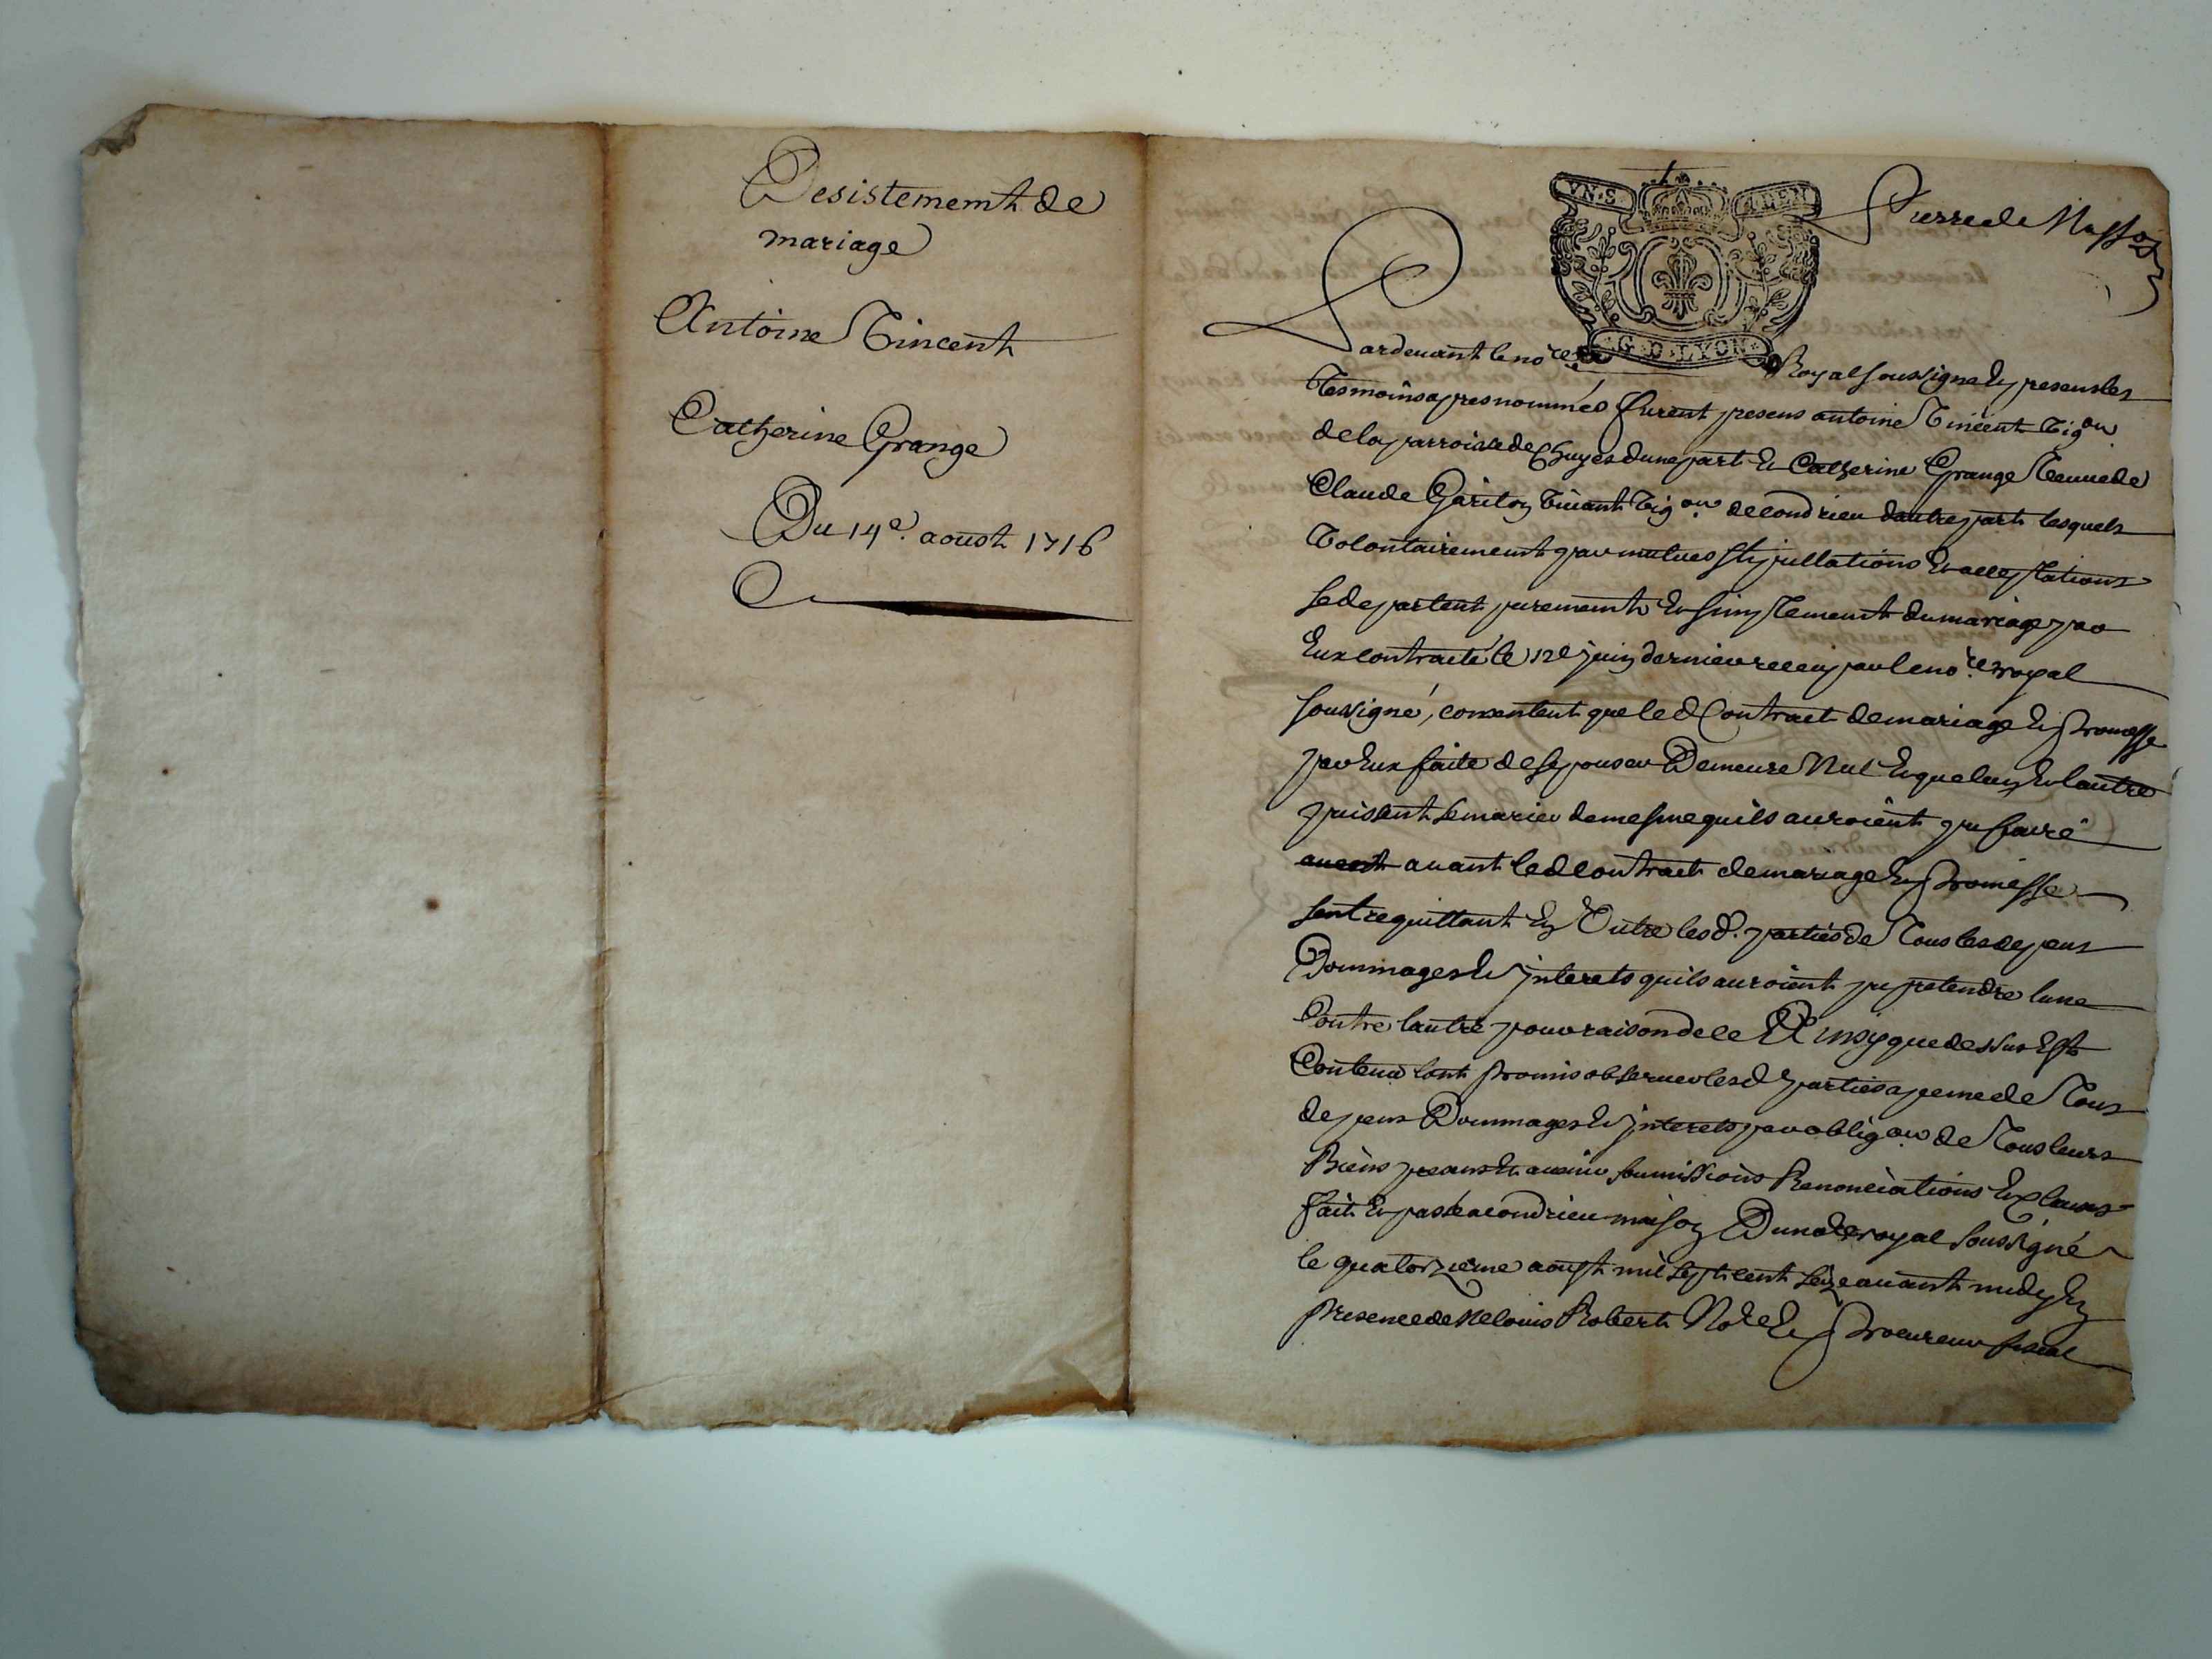 Desistement de
mariage
Antoine Vincent
Catherine Grange
Du 14e. aoust 1716
VN·S· 4 DEN
G·D·LYON
Pierre de Masso
Pardevant le no.re Royal soussigné Et presens les
tesmoins apres nommés furent presens antoine Vincent vig.on
de la parroisse de Chuyes d'une part Et Catherine Grange veuve de
Claude Gariton vivant vig.on de condrieu dautre part lesquels
volontairement par mutues stipullations Et acceptations
se departent purement Et simplement du mariage par
Eux contracté le 12e juin dernier receu par le no.re royal
soussigné, consentent que led Contract de mariage Et Promesse
par Eux faite de sepouser Demeure Nul Et que lun Et lautre
puissent se marier de mesme quils auroient pu faire
avant led contract de mariage Et Promesse
sentrequittant En Outre les d. parties de Tous les depens
Dommages Et interets quils auroient pu pretendre lune
Contre lautre pour raison de ce Et insy que dessus Est
Contenu lont promis observer lesd parties a peine de Tous
depens Dommages Et interets par oblig.on de Tous leurs
Biens presens Et avenir soumissions Renonciations Et Clauses
fait Et passé a condrieu maison Dud no.re royal soussigné
le quatorzieme aoust mil sept cent seize avant midy En
Presence de Me louis Robert No.re Et Procureur fiscal